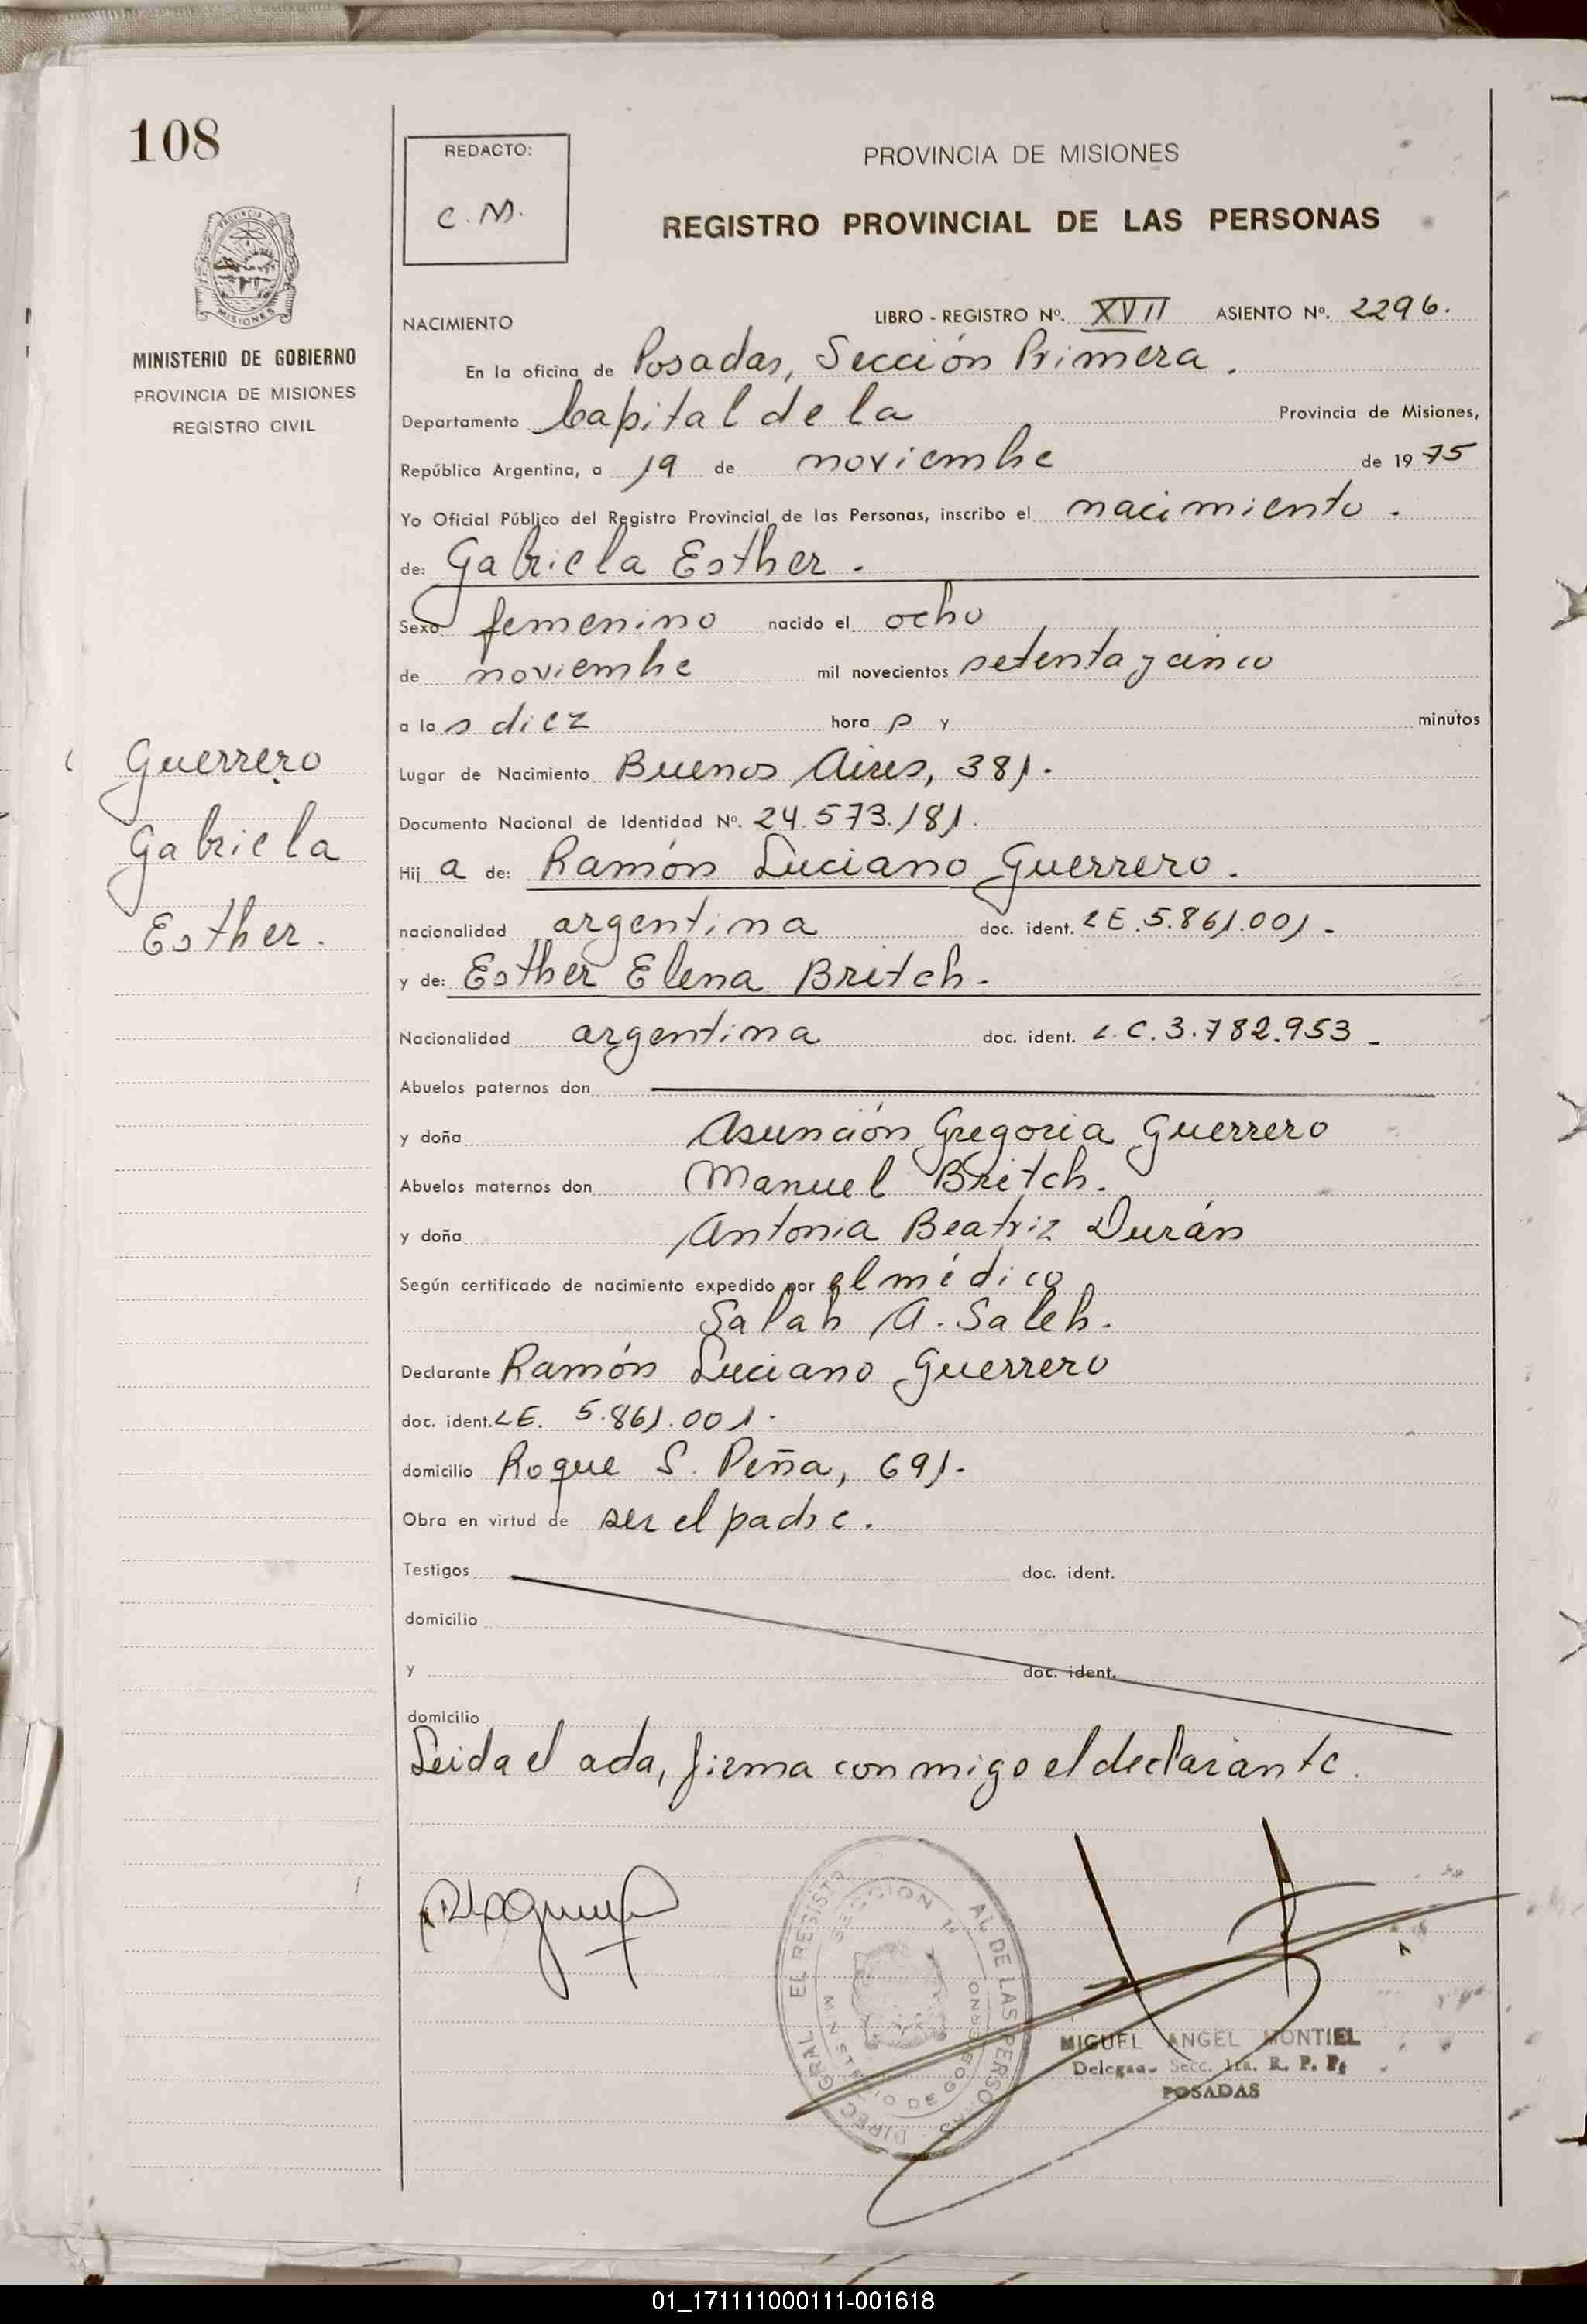 108
REDACTO:
C. M.
PROVINCIA DE MISIONES
REGISTRO PROVINCIAL DE LAS PERSONAS
MISIONES
MINISTERIO DE GOBIERNO
PROVINCIA DE MISIONES
REGISTRO CIVIL
NACIMIENTO LIBRO - REGISTRO Nº. XVII ASIENTO Nº. 2296.
En la oficina de Posadas, Sección Primera.
Departamento Capital de la Provincia de Misiones,
República Argentina, a 19 de noviembre de 1975
Yo Oficial Público del Registro Provincial de las Personas, inscribo el nacimiento.
de: Gabriela Esther.
Sexo femenino nacido el ocho
de noviembre mil novecientos setenta y cinco
a las diez hora s y minutos
Guerrero
Gabriela
Esther.
Lugar de Nacimiento Buenos Aires, 381.
Documento Nacional de Identidad Nº. 24.573.181.
Hij a de: Ramón Luciano Guerrero.
nacionalidad argentina doc. ident. LE. 5.861.001.-
y de: Esther Elena Britch.-
Nacionalidad argentina doc. ident. L.C. 3.782.953.-
Abuelos paternos don
y doña Asunción Gregoria Guerrero
Abuelos maternos don Manuel Britch.
y doña Antonia Beatriz Durán
Según certificado de nacimiento expedido por el médico
Salah A. Saleh.
Declarante Ramón Luciano Guerrero
doc. ident. LE. 5.861.001.
domicilio Roque S. Peña, 691.-
Obra en virtud de ser el padre.
Testigos doc. ident.
domicilio
y doc. ident.
domicilio
Leida el acta, firma conmigo el declarante.
SECCION 1ª
MINISTERIO DE GOBIERNO
MIGUEL ANGEL MONTIEL
Delegado Secc. 1ra. R. P. P.
POSADAS
01_171111000111-001618